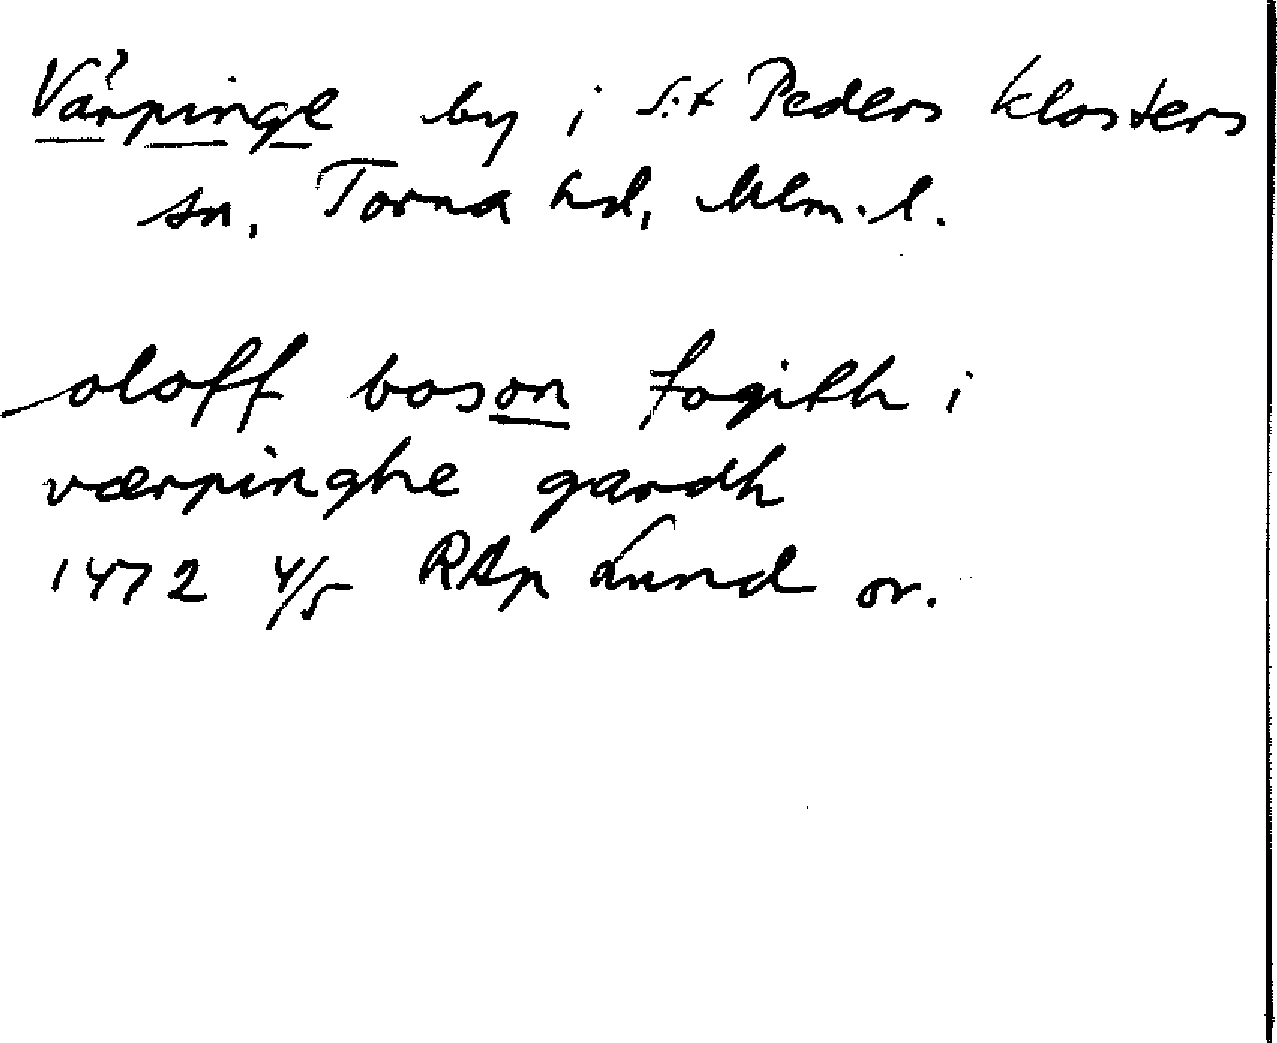 Värpinge by i S:t Peders klosters
sn, Torna hd, Mlm. l.
oloff boson fogith i
værpinghe gardh
1472 4/5 RAp Lund or.